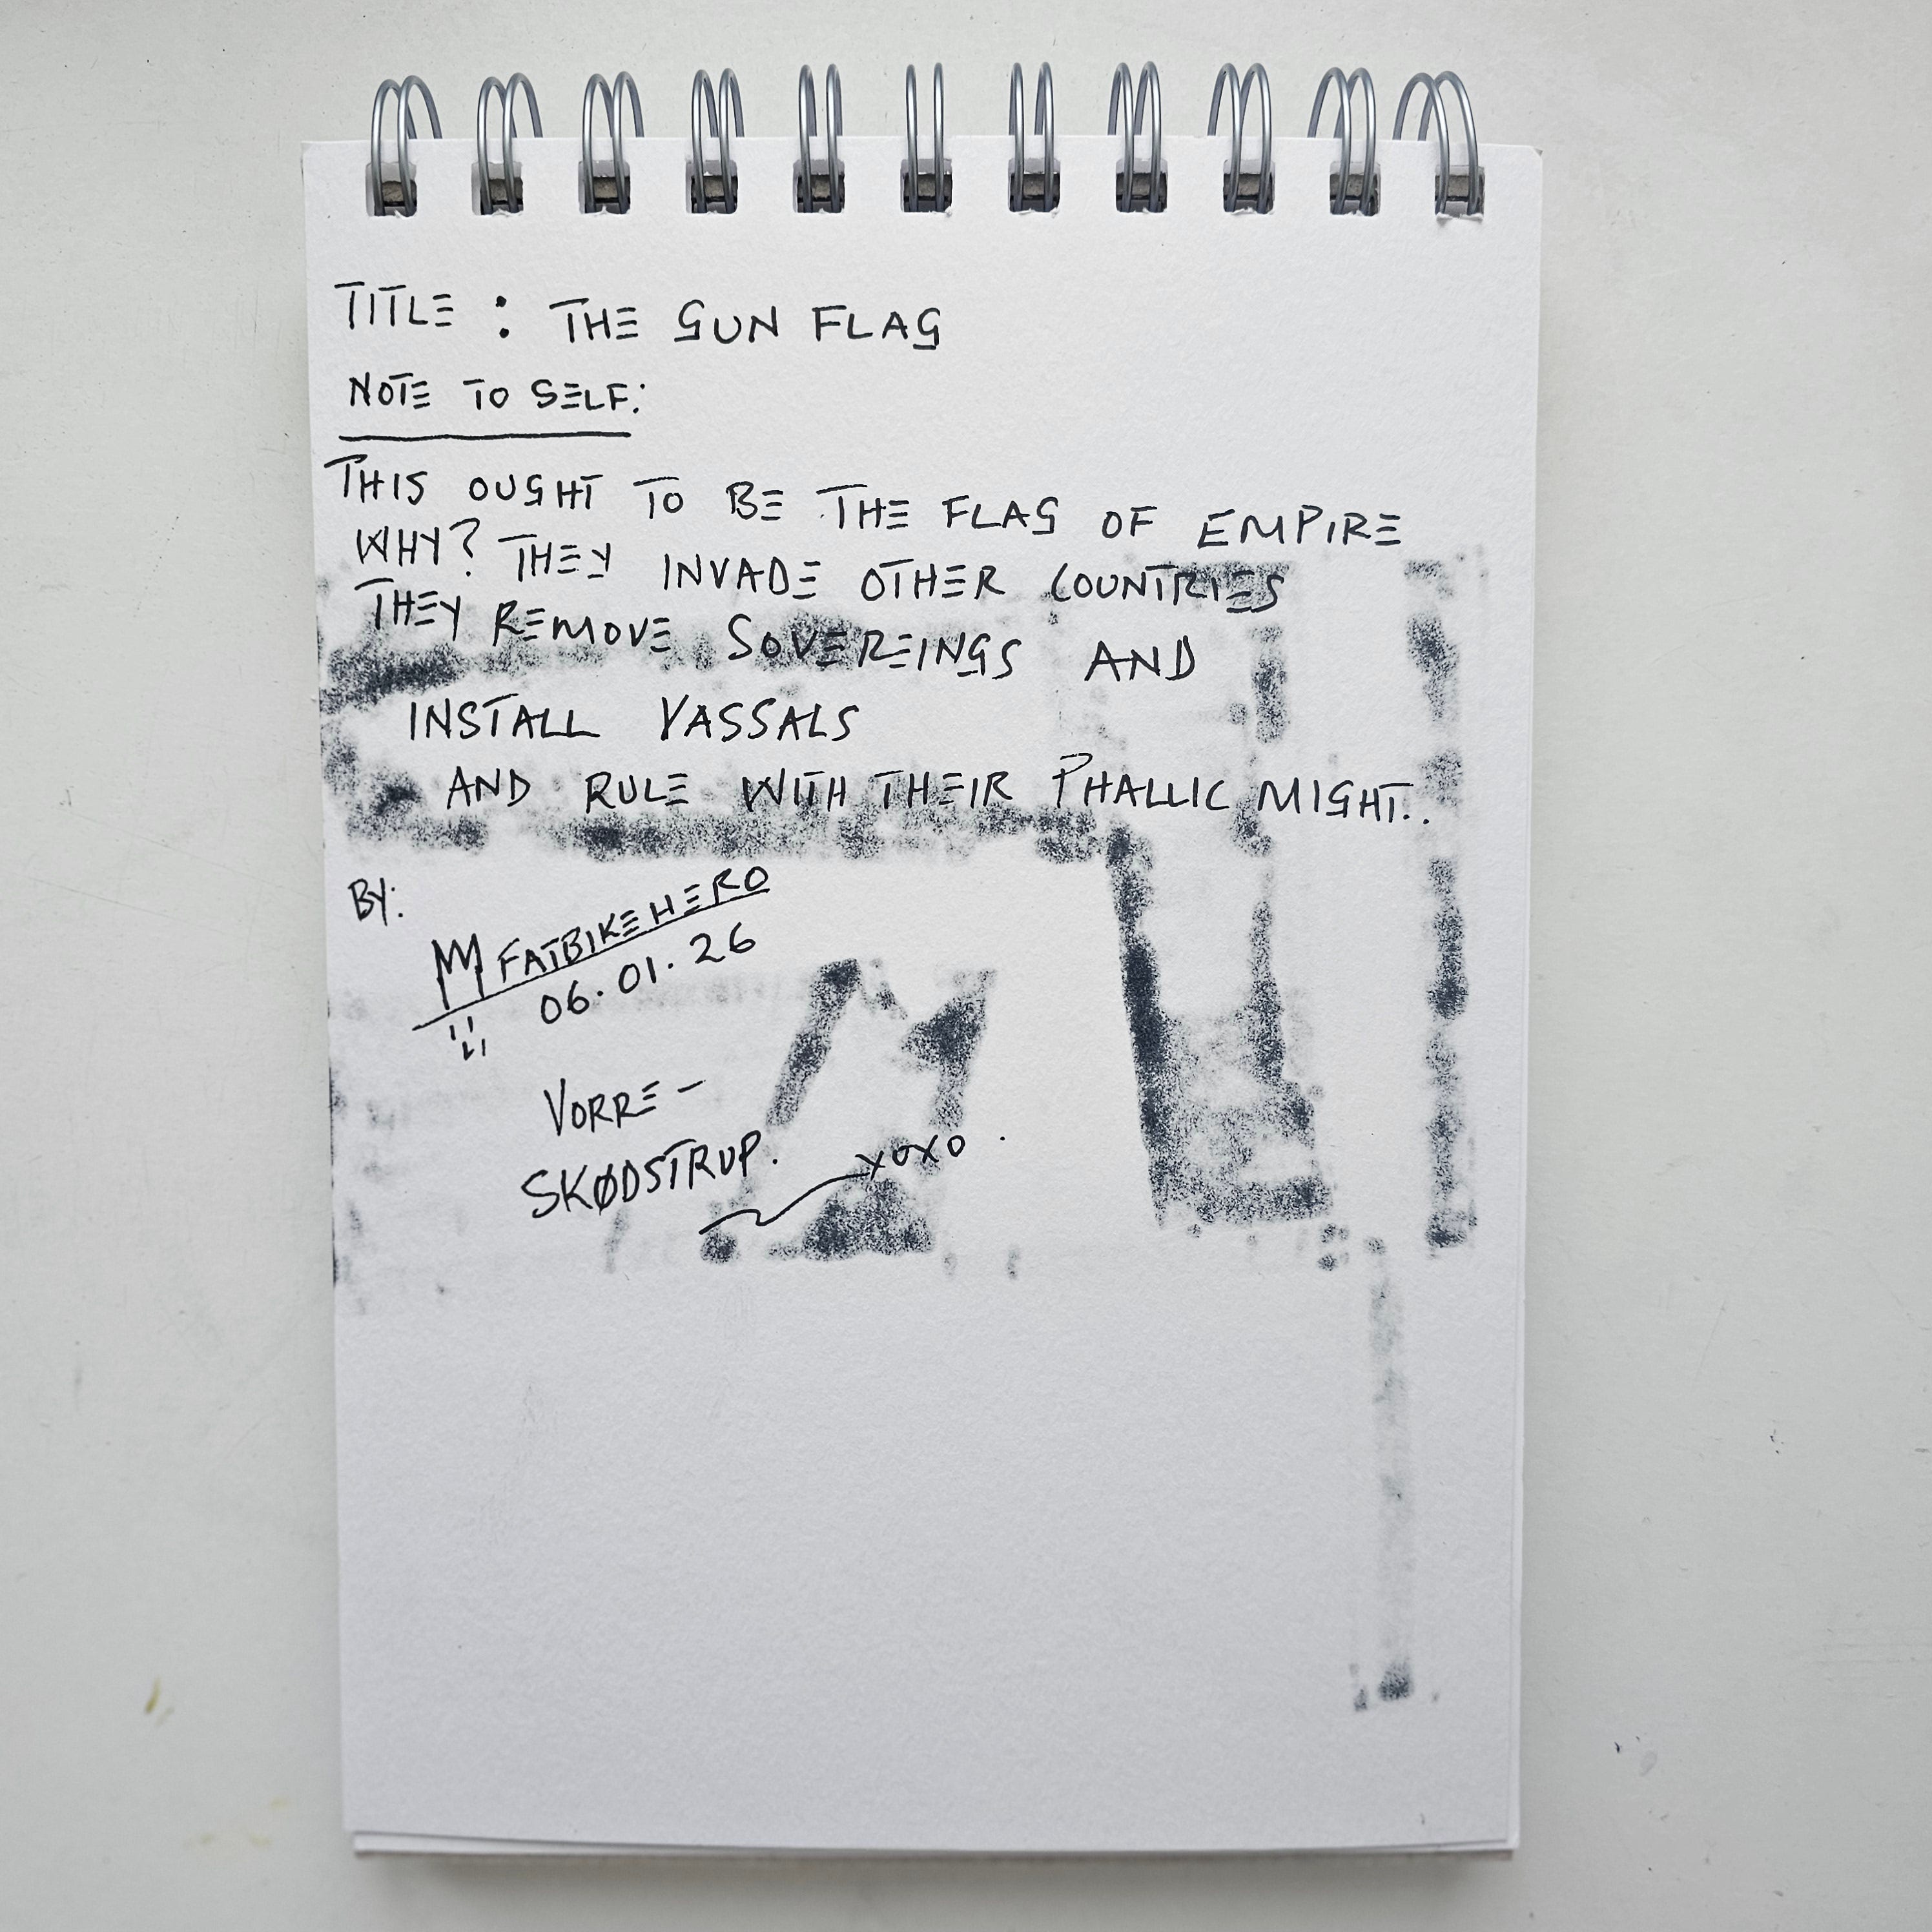 TITLE : THE GUN FLAG
NOTE TO SELF:
THIS OUGHT TO BE THE FLAG OF EMPIRE
WHY? THEY INVADE OTHER COUNTRIES
THEY REMOVE SOVEREINGS AND
INSTALL VASSALS
AND RULE WITH THEIR PHALLIC MIGHT..
BY:
FATBIKEHERO
06.01.26
VORRE-
SKØDSTRUP.
XOXO.